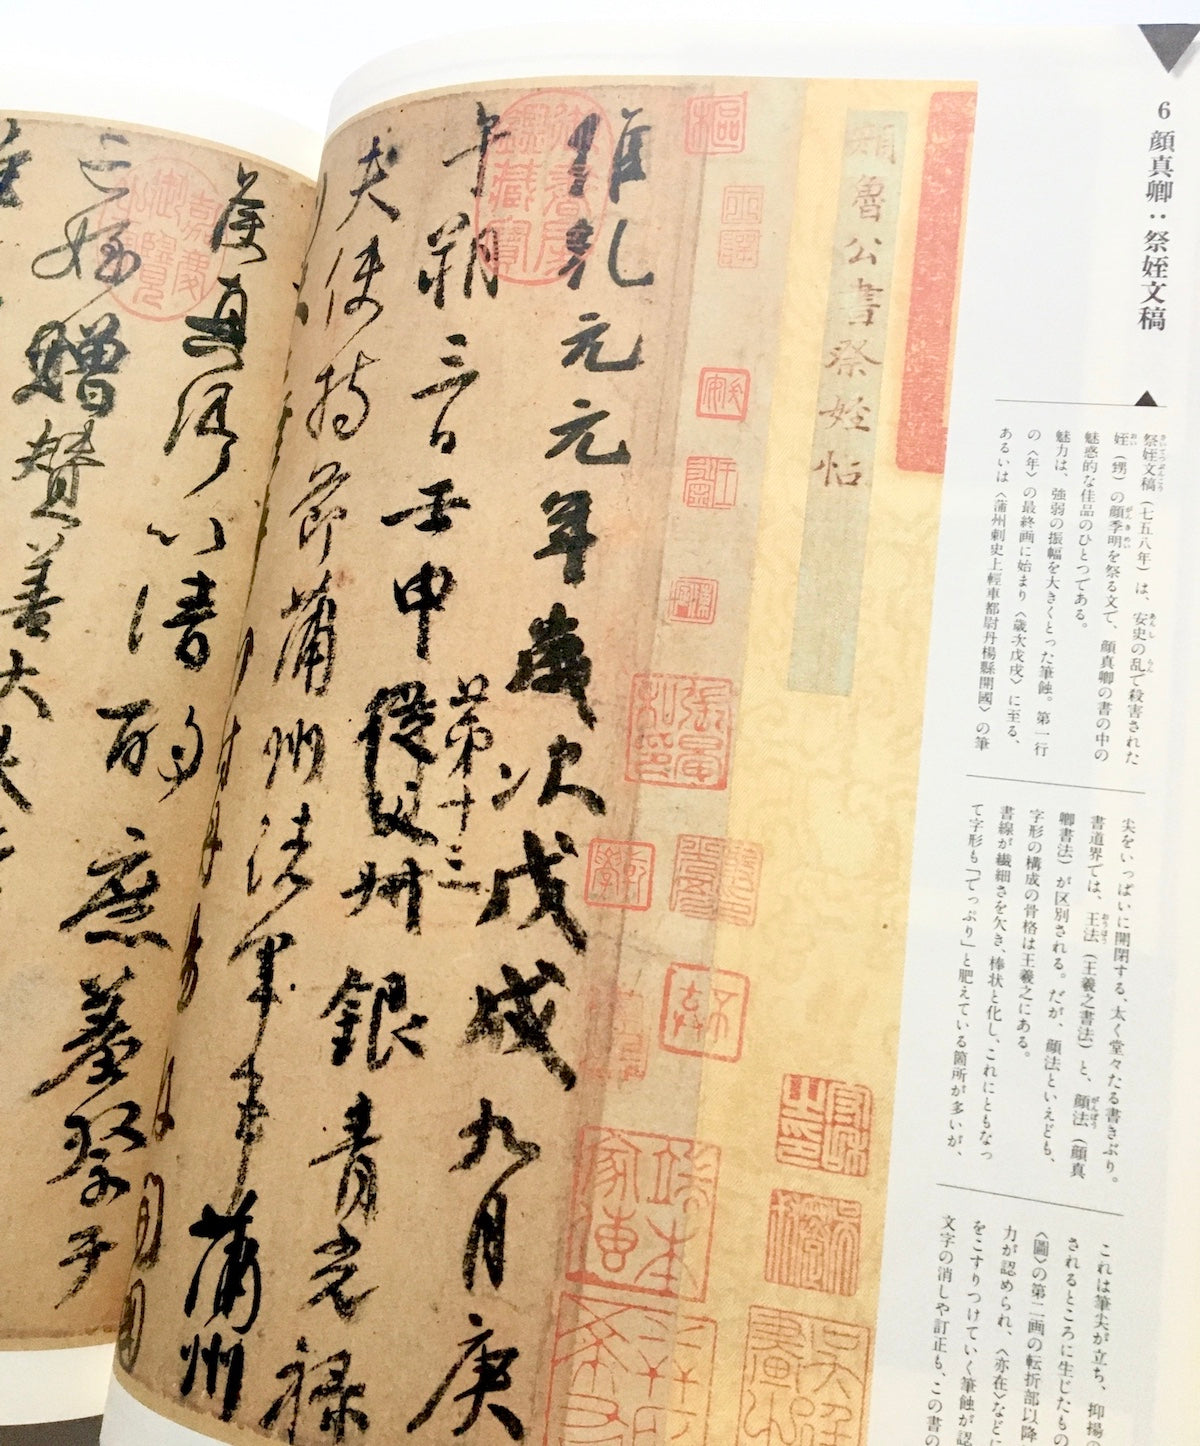 6 顔真卿：祭姪文稿
祭姪文稿（七五八年）は、安史の乱で殺害された
姪（甥）の顔季明を祭る文で、顔真卿の書の中の
魅惑的な佳品のひとつである。
魅力は、強弱の振幅を大きくとった筆蝕。第一行
の〈年〉の最終画に始まり〈歳次戊戌〉に至る、
あるいは〈蒲州刺史上輕車都尉丹楊縣開國〉の筆
尖をいっぱいに開閉する、太く堂々たる書きぶり。
書道界では、王法（王羲之書法）と、顔法（顔真
卿書法）が区別される。だが、顔法といえども、
字形の構成の骨格は王羲之にある。
書線が繊細さを欠き、棒状と化し、これにともなっ
て字形も「てっぷり」と肥えている箇所が多いが、
これは筆尖が立ち、抑揚の
されるところに生じたもの
〈圖〉の第二画の転折部以降
力が認められ、〈亦在〉などに
をこすりつけていく筆蝕が認
文字の消しや訂正も、この書の
顔魯公書祭姪帖
維乾元元年歳次戊戌九月庚
午朔三日壬申第十三叔銀青光禄
從父
夫使持節蒲州諸軍事蒲州
侯真卿以清酌庶羞祭于
亡姪贈贊善大夫